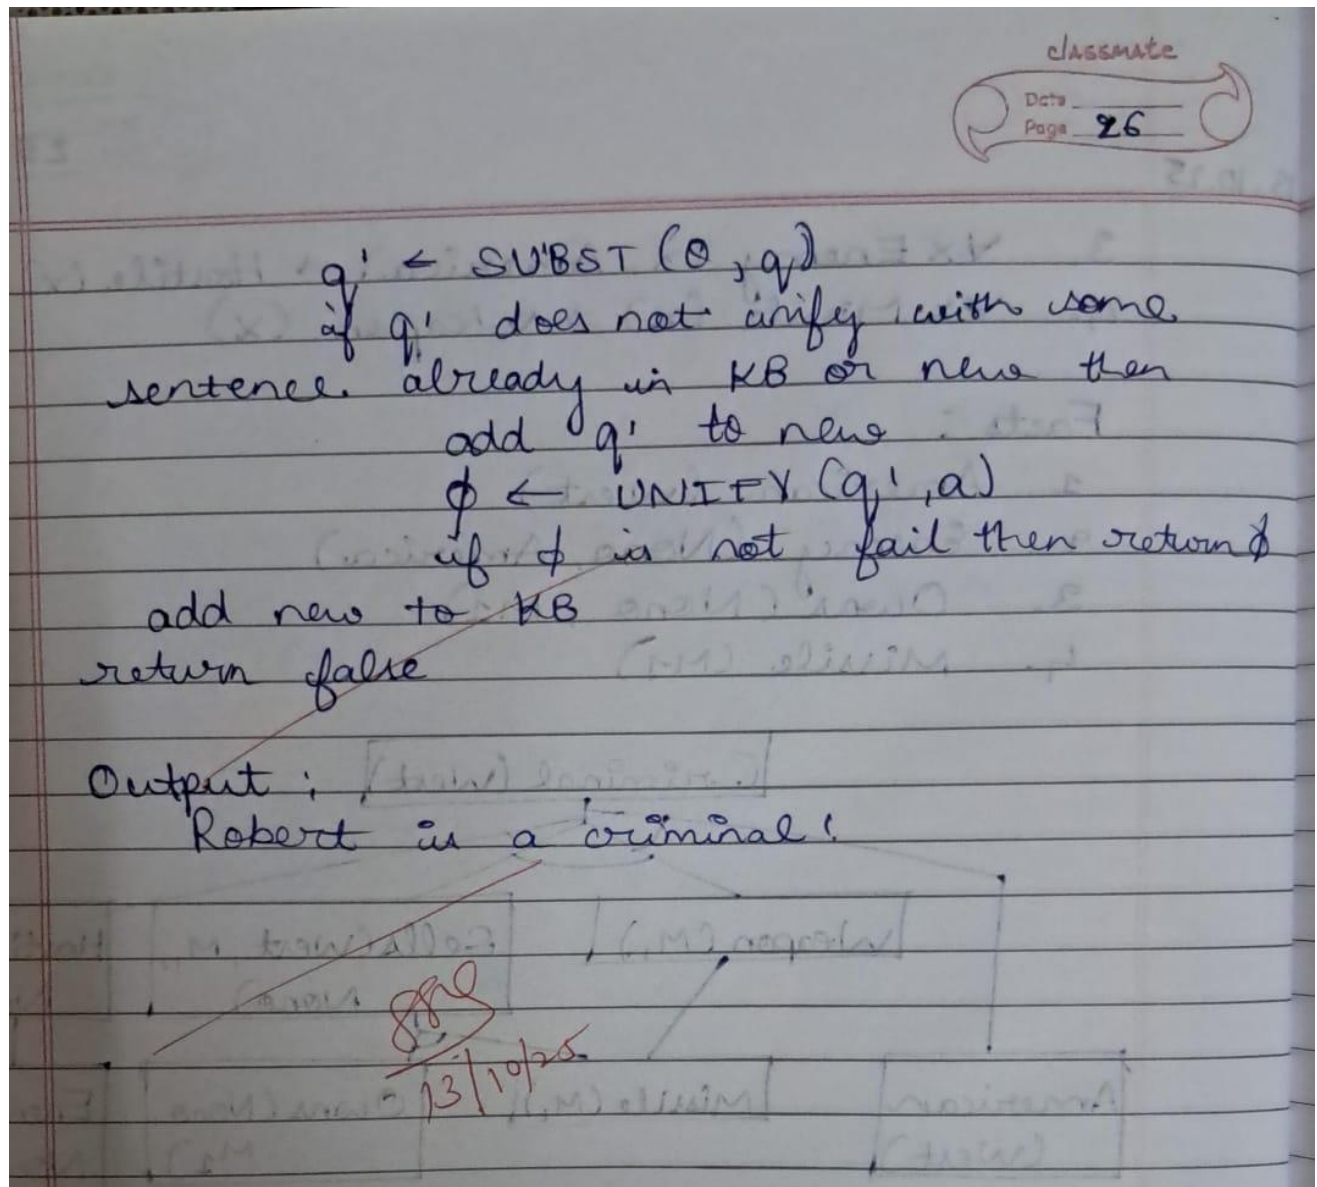 classmate
Date
Page 26
q' ← SUBST (θ, q)
if q' does not unify with some
sentence already in KB or new then
add q' to new
ϕ ← UNIFY (q', a)
if ϕ is not fail then return ϕ
add new to KB
return false
Output :
Robert is a criminal!
13/10/25